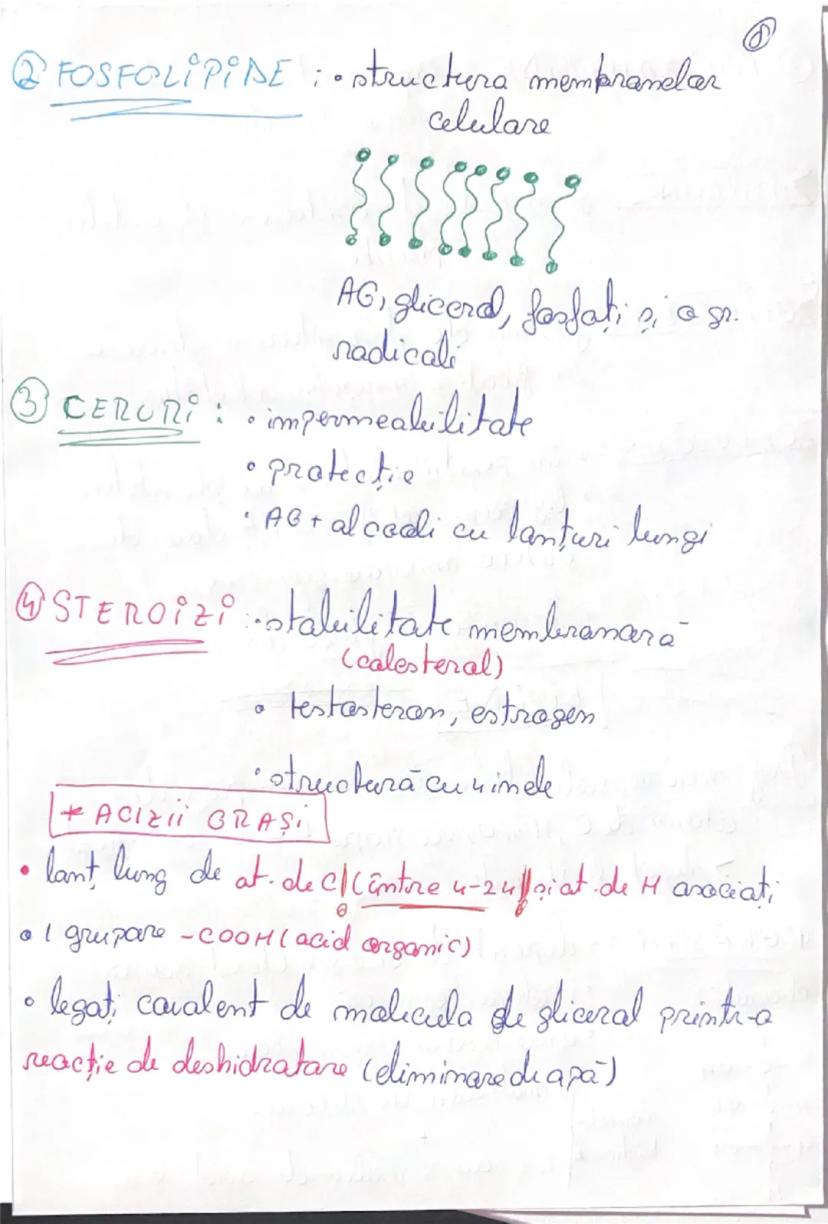 8
② FOSFOLIPIDE : • structura membranelor
celulare
AG, glicerol, fosfați și a gr.
radicali
③ CERURI : • impermeabilitate
• protecție
• AG + alcooli cu lanțuri lungi
④ STEROIZI : • stabilitate membranară
(colesterol)
• testosteron, estrogen
• structură cu 4 inele
* ACIZII GRAȘI
• lanț lung de at. de C (între 4-24) și at. de H asociați
• 1 grupare -COOH (acid organic)
• legați covalent de molecula de glicerol printr-o
reacție de deshidratare (eliminare de apă)